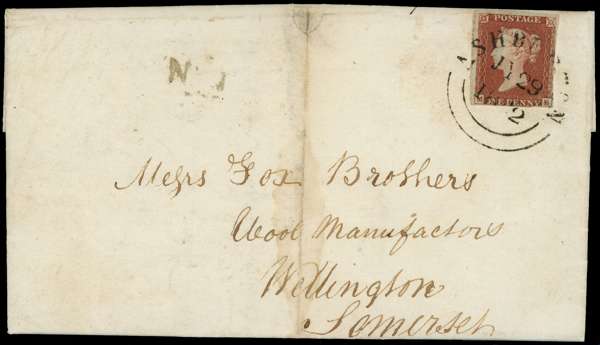 POSTAGE
ONE PENNY
ASHBURTON
JA 29
Messrs Fox Brothers
Wool Manufactors
Wellington
Somerset